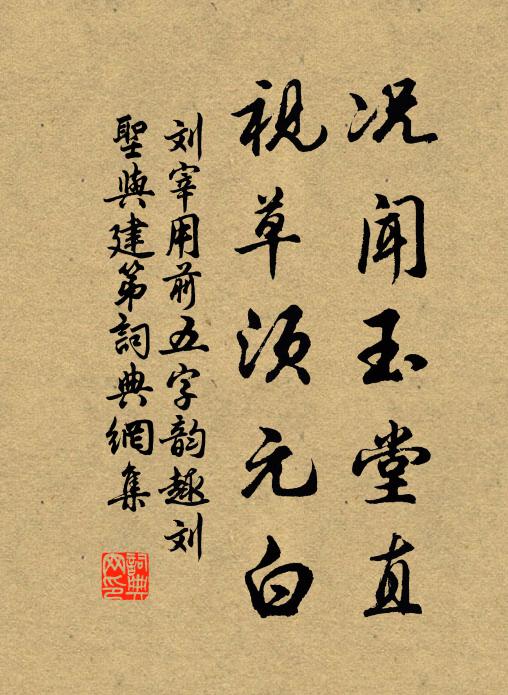 况闻玉堂直
视草须元白
刘宰用前五字韵趣刘
圣与建第詞典網集
詞典
网印